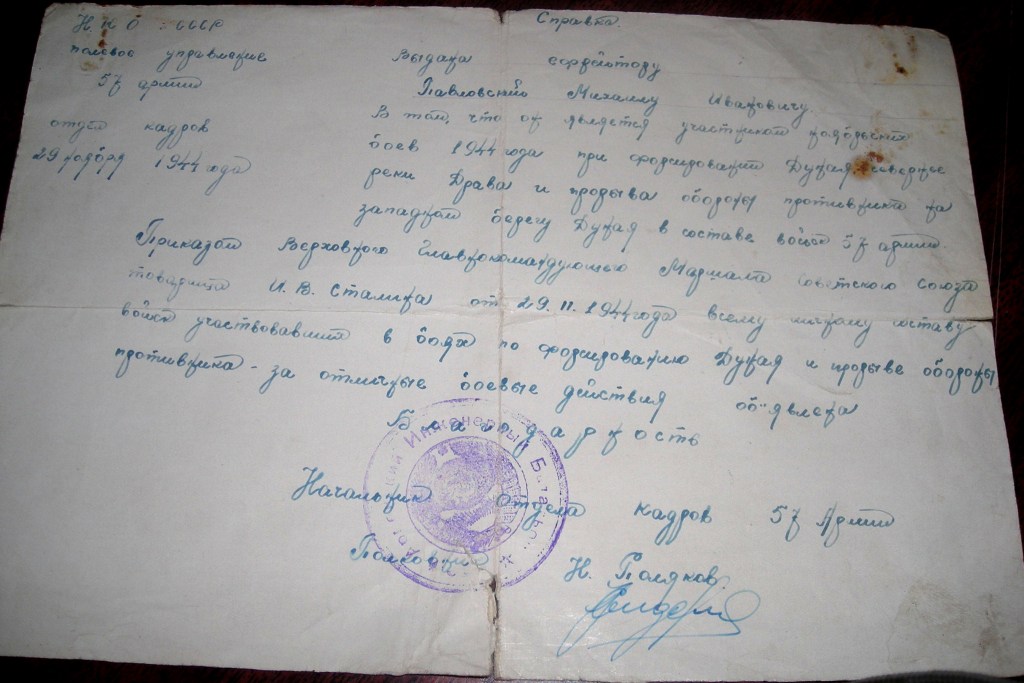 Н.К.О. СССР
полевое управление
57 армии
отдел кадров
29 ноября 1944 года
Справка.
Выдана сержантозу
Павловский Михаилу Ивановичу.
В том, что он является участником ноябрьских
боев 1944 года при форсировании Дуная севернее
реки Драва и прорыва обороны противника на
западном берегу Дуная в составе войск 57 армии.
Приказом Верховного Главнокомандующего Маршала Советского Союза
товарища И.В. Сталина от 29.11.1944 года всему личному составу
войск участвовавший в боях по форсированию Дуная и прорыве обороны
противника - за отличные боевые действия об"явлена
Благодарность
Начальник отдела кадров 57 Армии
Полковник
Н. Поляков
Инженерный